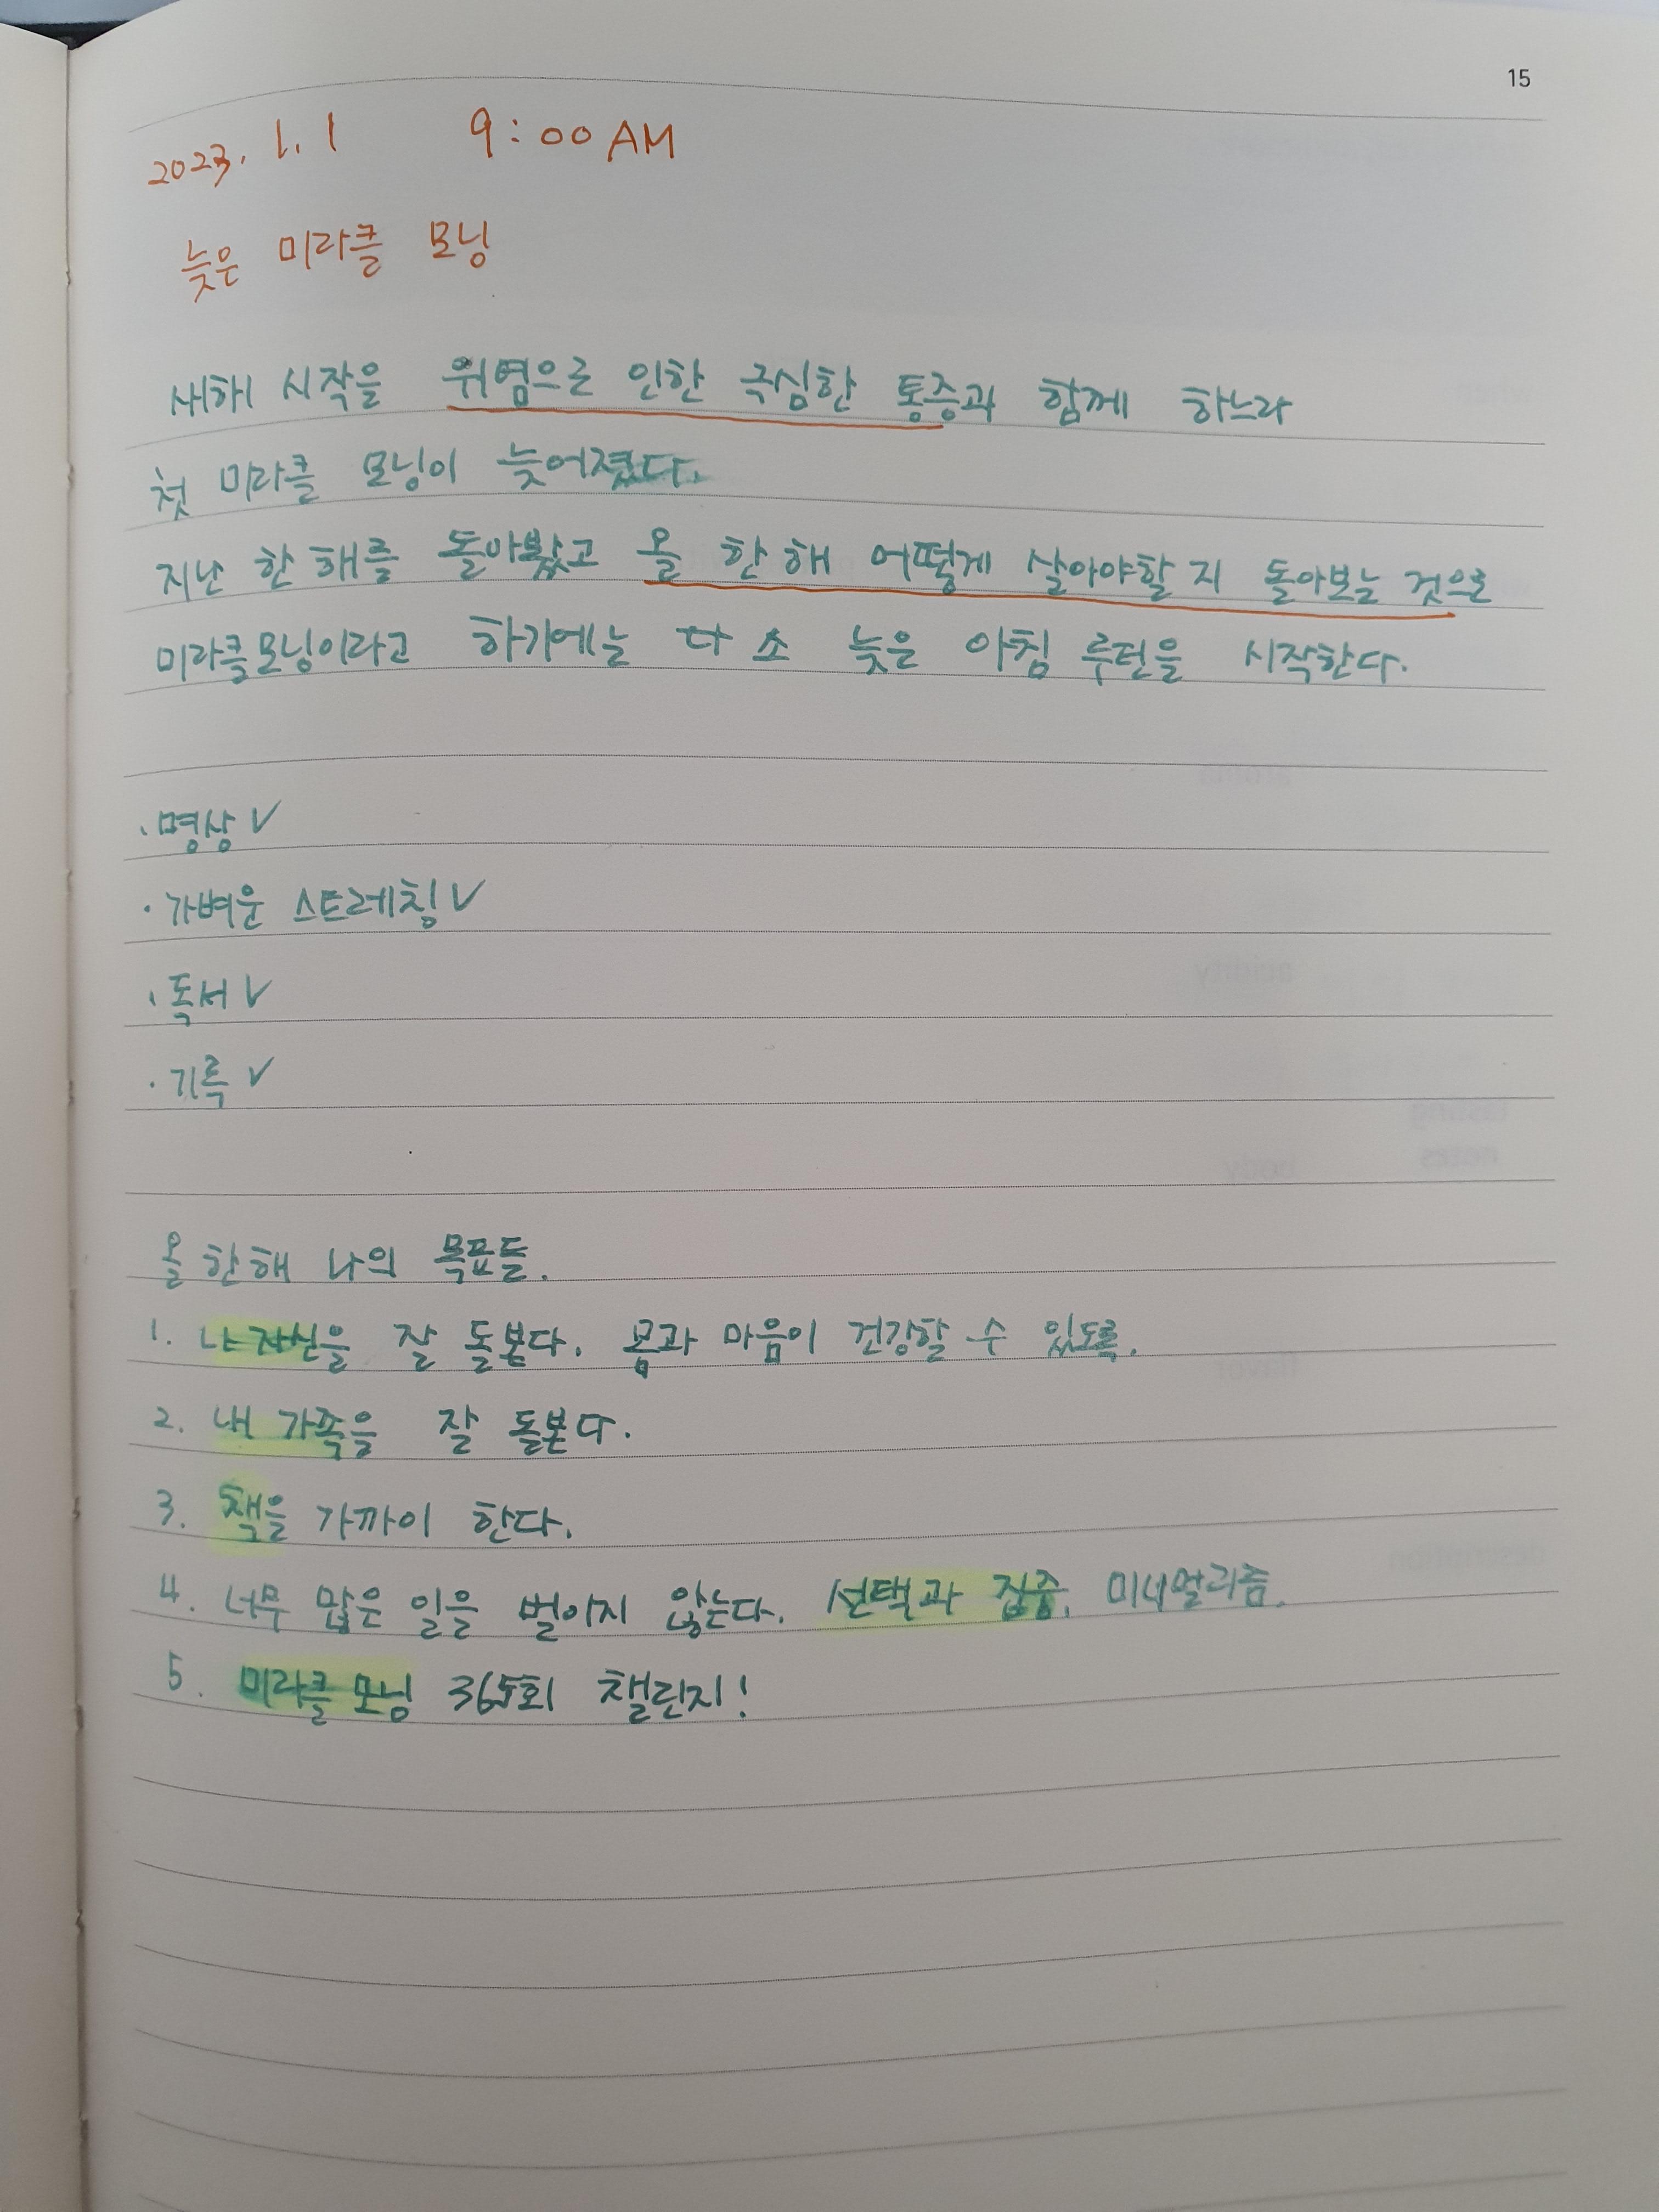 15
2023. 1. 1 9:00 AM
늦은 미라클 모닝
새해 시작을 위염으로 인한 극심한 통증과 함께 하느라
첫 미라클 모닝이 늦어졌다.
지난 한 해를 돌아봤고 올 한 해 어떻게 살아야할 지 돌아보는 것으로
미라클모닝이라고 하기에는 다소 늦은 아침 루틴을 시작한다.
· 명상 ✓
· 가벼운 스트레칭 ✓
· 독서 ✓
· 기록 ✓
올 한해 나의 목표들.
1. 나 자신을 잘 돌본다. 몸과 마음이 건강할 수 있도록.
2. 내 가족을 잘 돌본다.
3. 책을 가까이 한다.
4. 너무 많은 일을 벌이지 않는다. 선택과 집중. 미니멀리즘.
5. 미라클 모닝 365회 챌린지!